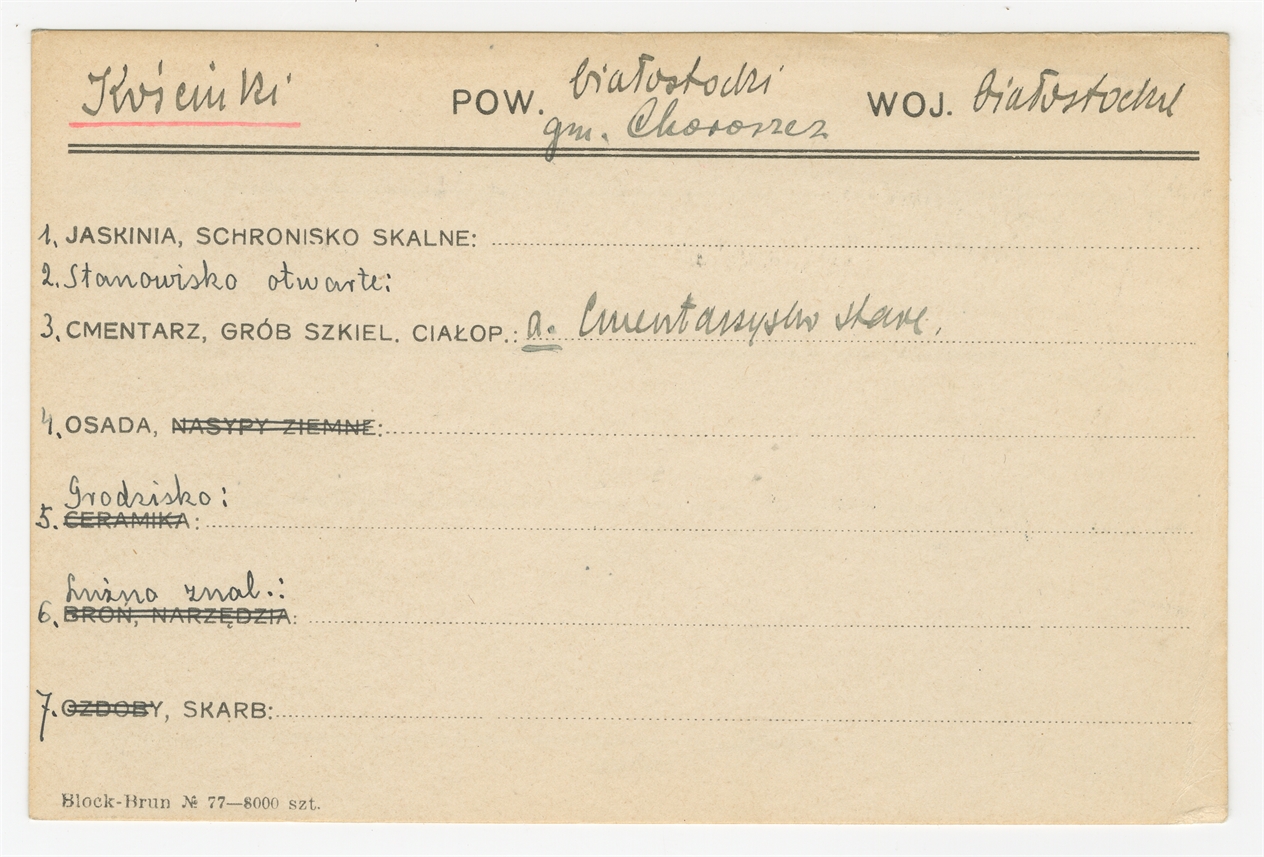 Kościuki POW. białostocki WOJ. białostockie
gm. Choroszcz
1. JASKINIA, SCHRONISKO SKALNE:
2. Stanowisko otwarte:
3. CMENTARZ, GRÓB SZKIEL. CIAŁOP.: a. Cmentarzysko stare.
4. OSADA, NASYPY ZIEMNE:
Grodzisko:
5. CERAMIKA:
Luźno znal.:
6. BROŃ, NARZĘDZIA:
7. OZDOBY, SKARB:
Block-Brun № 77—8000 szt.